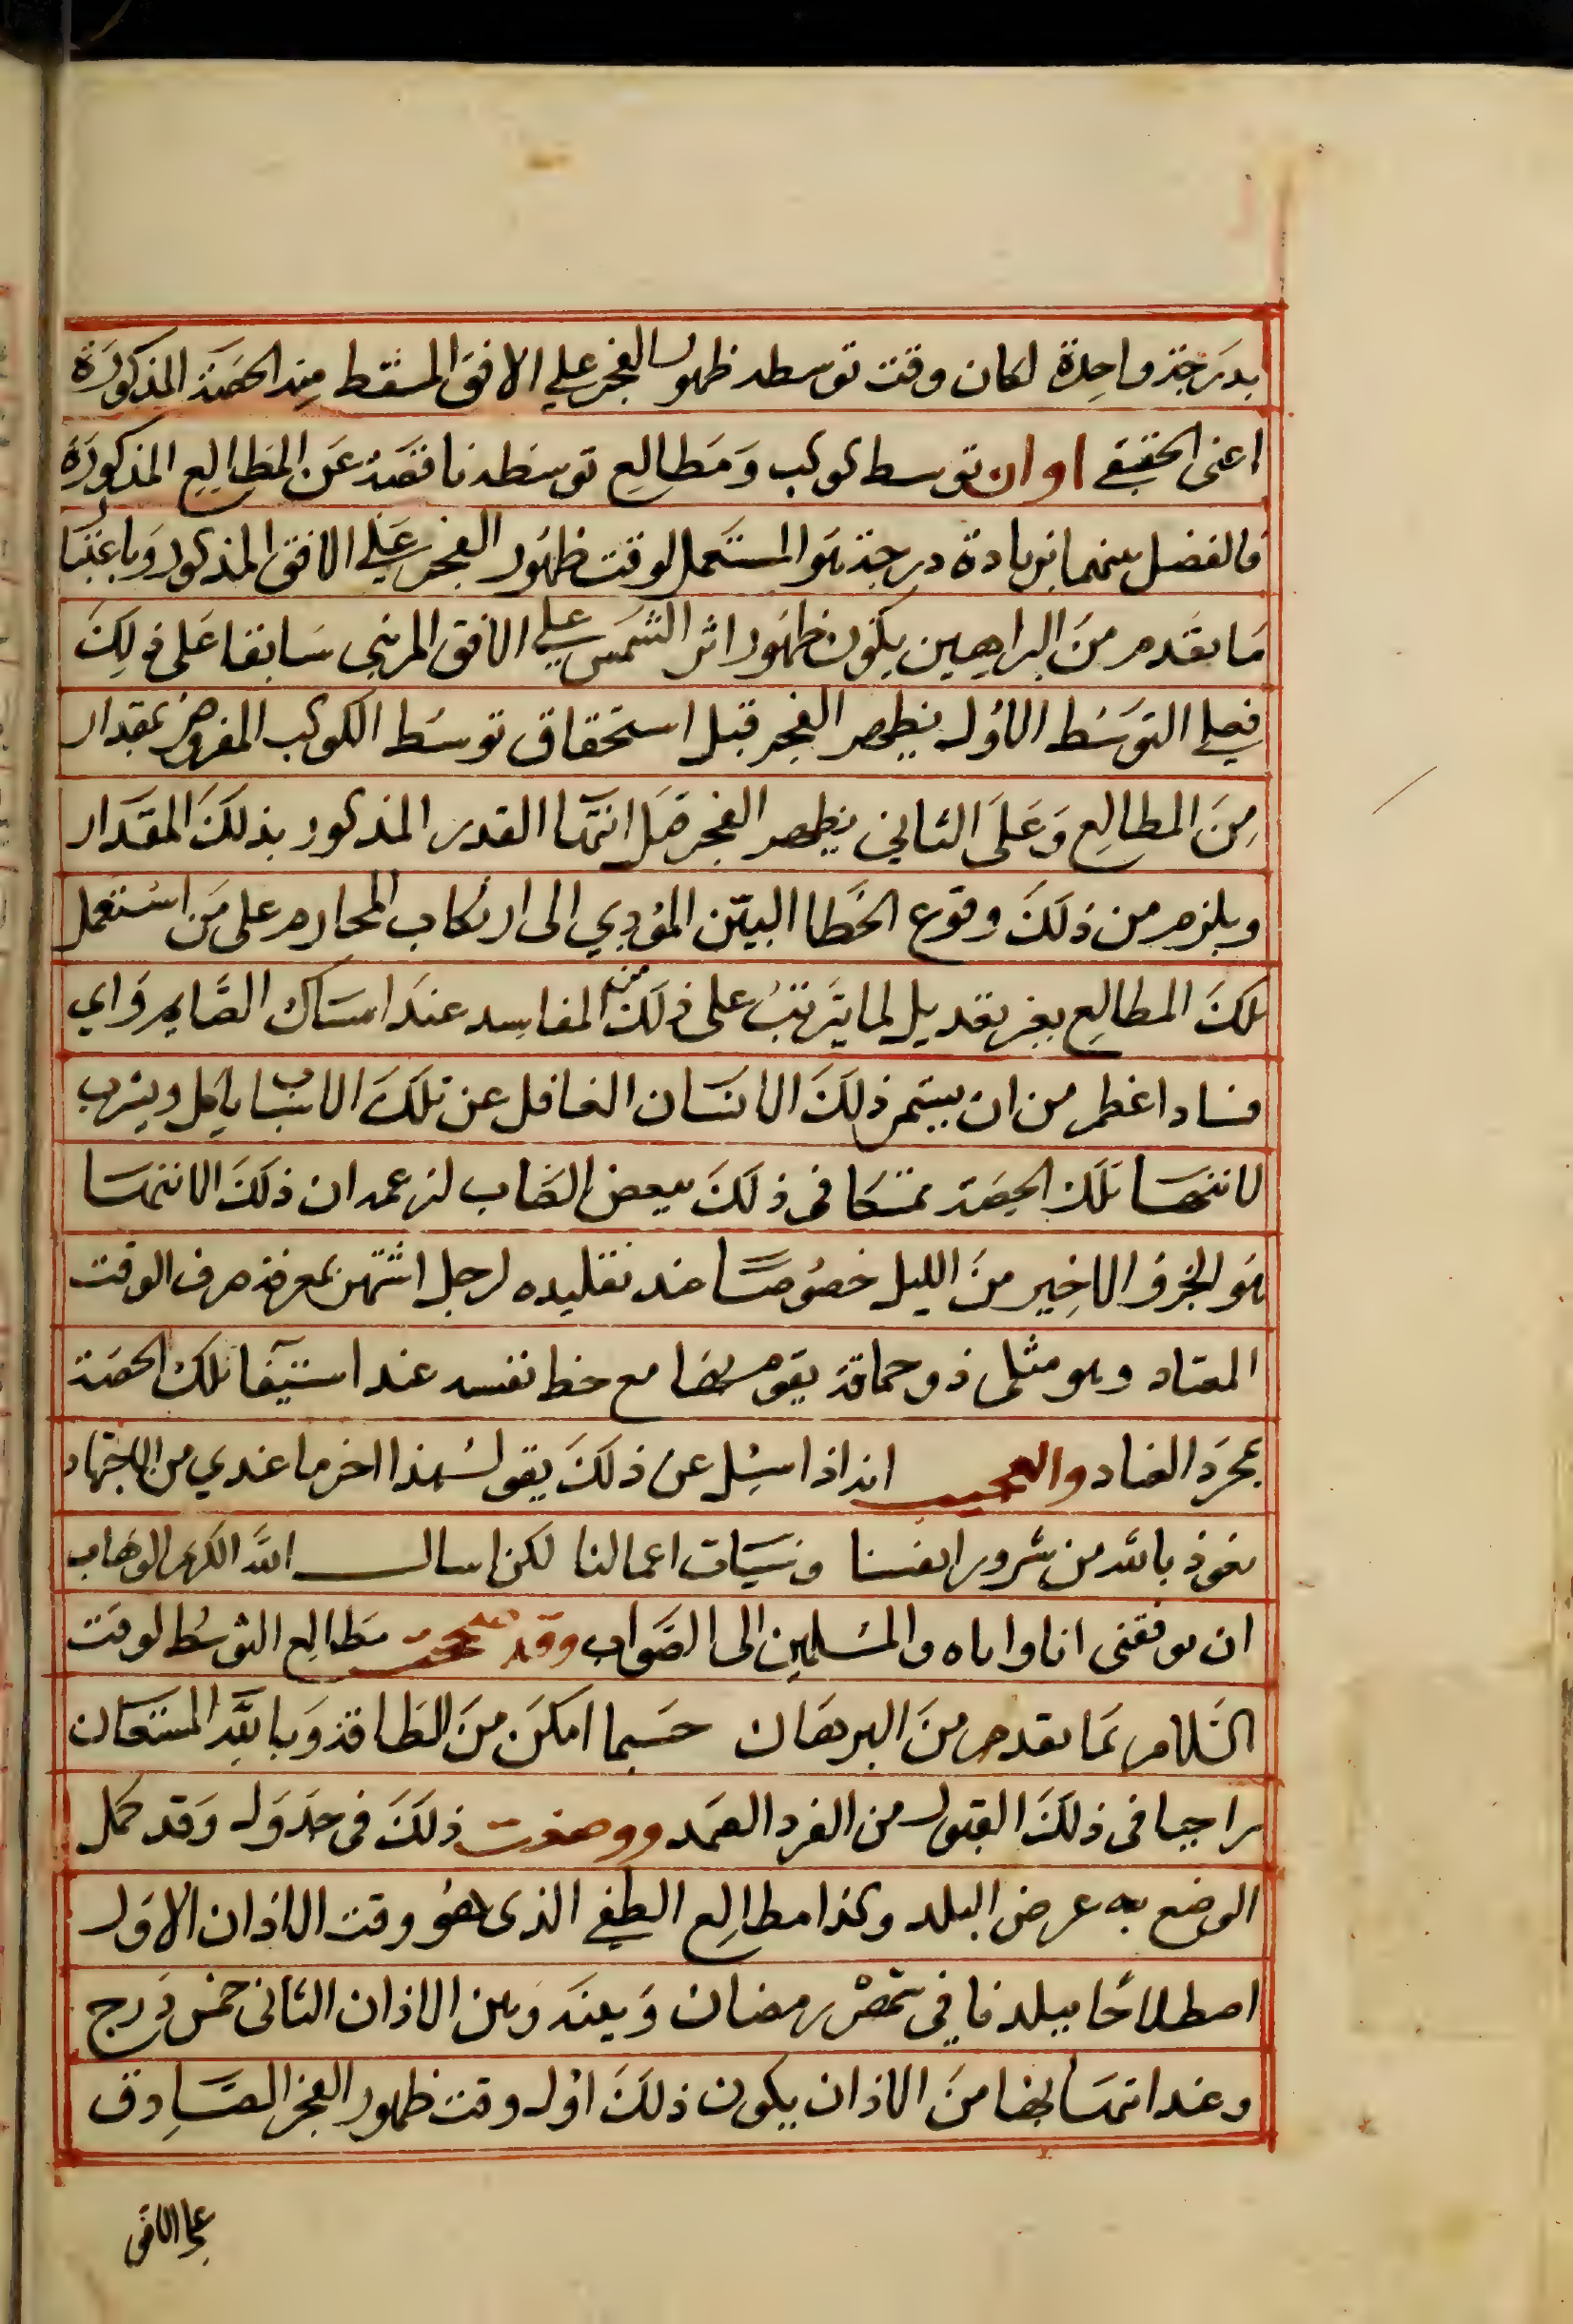 بدرجة واحدة لكان وقت توسطه ظهور الفجر علي الافق المسقط منه الحصة المذكورة
اعنى الحقيقي اوان توسط كوكب ومطالع توسطه ناقصة عن المطالع المذكورة
فالفضل بينهما بزيادة درجة هو المستعمل لوقت ظهور الفجر علي الافق المذكور وباعتبا
ما تقدم من البراهين يكون ظهور اثر الشمس علي الافق المرئي سابقا على ذلك
فعلي التوسط الاول يظهر الفجر قبل استحقاق توسط الكوكب المفروض بمقدار
من المطالع وعلى الثاني يظهر الفجر قبل انتها القدر المذكور بذلك المقدار
ويلزم من ذلك وقوع الخطا البين المؤدي الى ارتكاب المحارم على من استعمل
تلك المطالع بغير تعديل لما يترتب على ذلك من المفاسد عند امساك الصايم واي
فساد اعظم من ان يستمر ذلك الانسان الغافل عن تلك الاسباب ياكل ويشرب
لانتها تلك الحصة متمسكا فى ذلك ببعض الحساب لزعمه ان ذلك الانتها
هو الجزو الاخير من الليل خصوصا عند تقليده لرجل اشتهر بمعرفة صرف الوقت
المعتاد وهو مثلى ذو حماقة يقوم بها مع حظ نفسه عند استيفا تلك الحصة
بمجرد العناد والعجيب انه اذا سئل عن ذلك يقول هذا اخر ما عندي من الاجتهاد
نعوذ بالله من شرور انفسنا وسيات اعمالنا لكن اسال الله الكريم الوهاب
ان يوفقنى انا واياه والمسلمين الى الصواب وقد صححت مطالع التوسط لوقت
السلام بما تقدم من البرهان حسبما امكن من الطاقة وبالله المستعان
راجيا فى ذلك القبول من الفرد الصمد ووضعت ذلك فى جدول وقد كمل
الوضع به عرض البلد وكذا مطالع الطفي الذى هو وقت الاذان الاول
اصطلاحا ببلدنا في شهر رمضان وبينه وبين الاذان الثانى خمس درج
وعند انتهائها من الاذان يكون ذلك اول وقت ظهور الفجر الصادق
على الافق